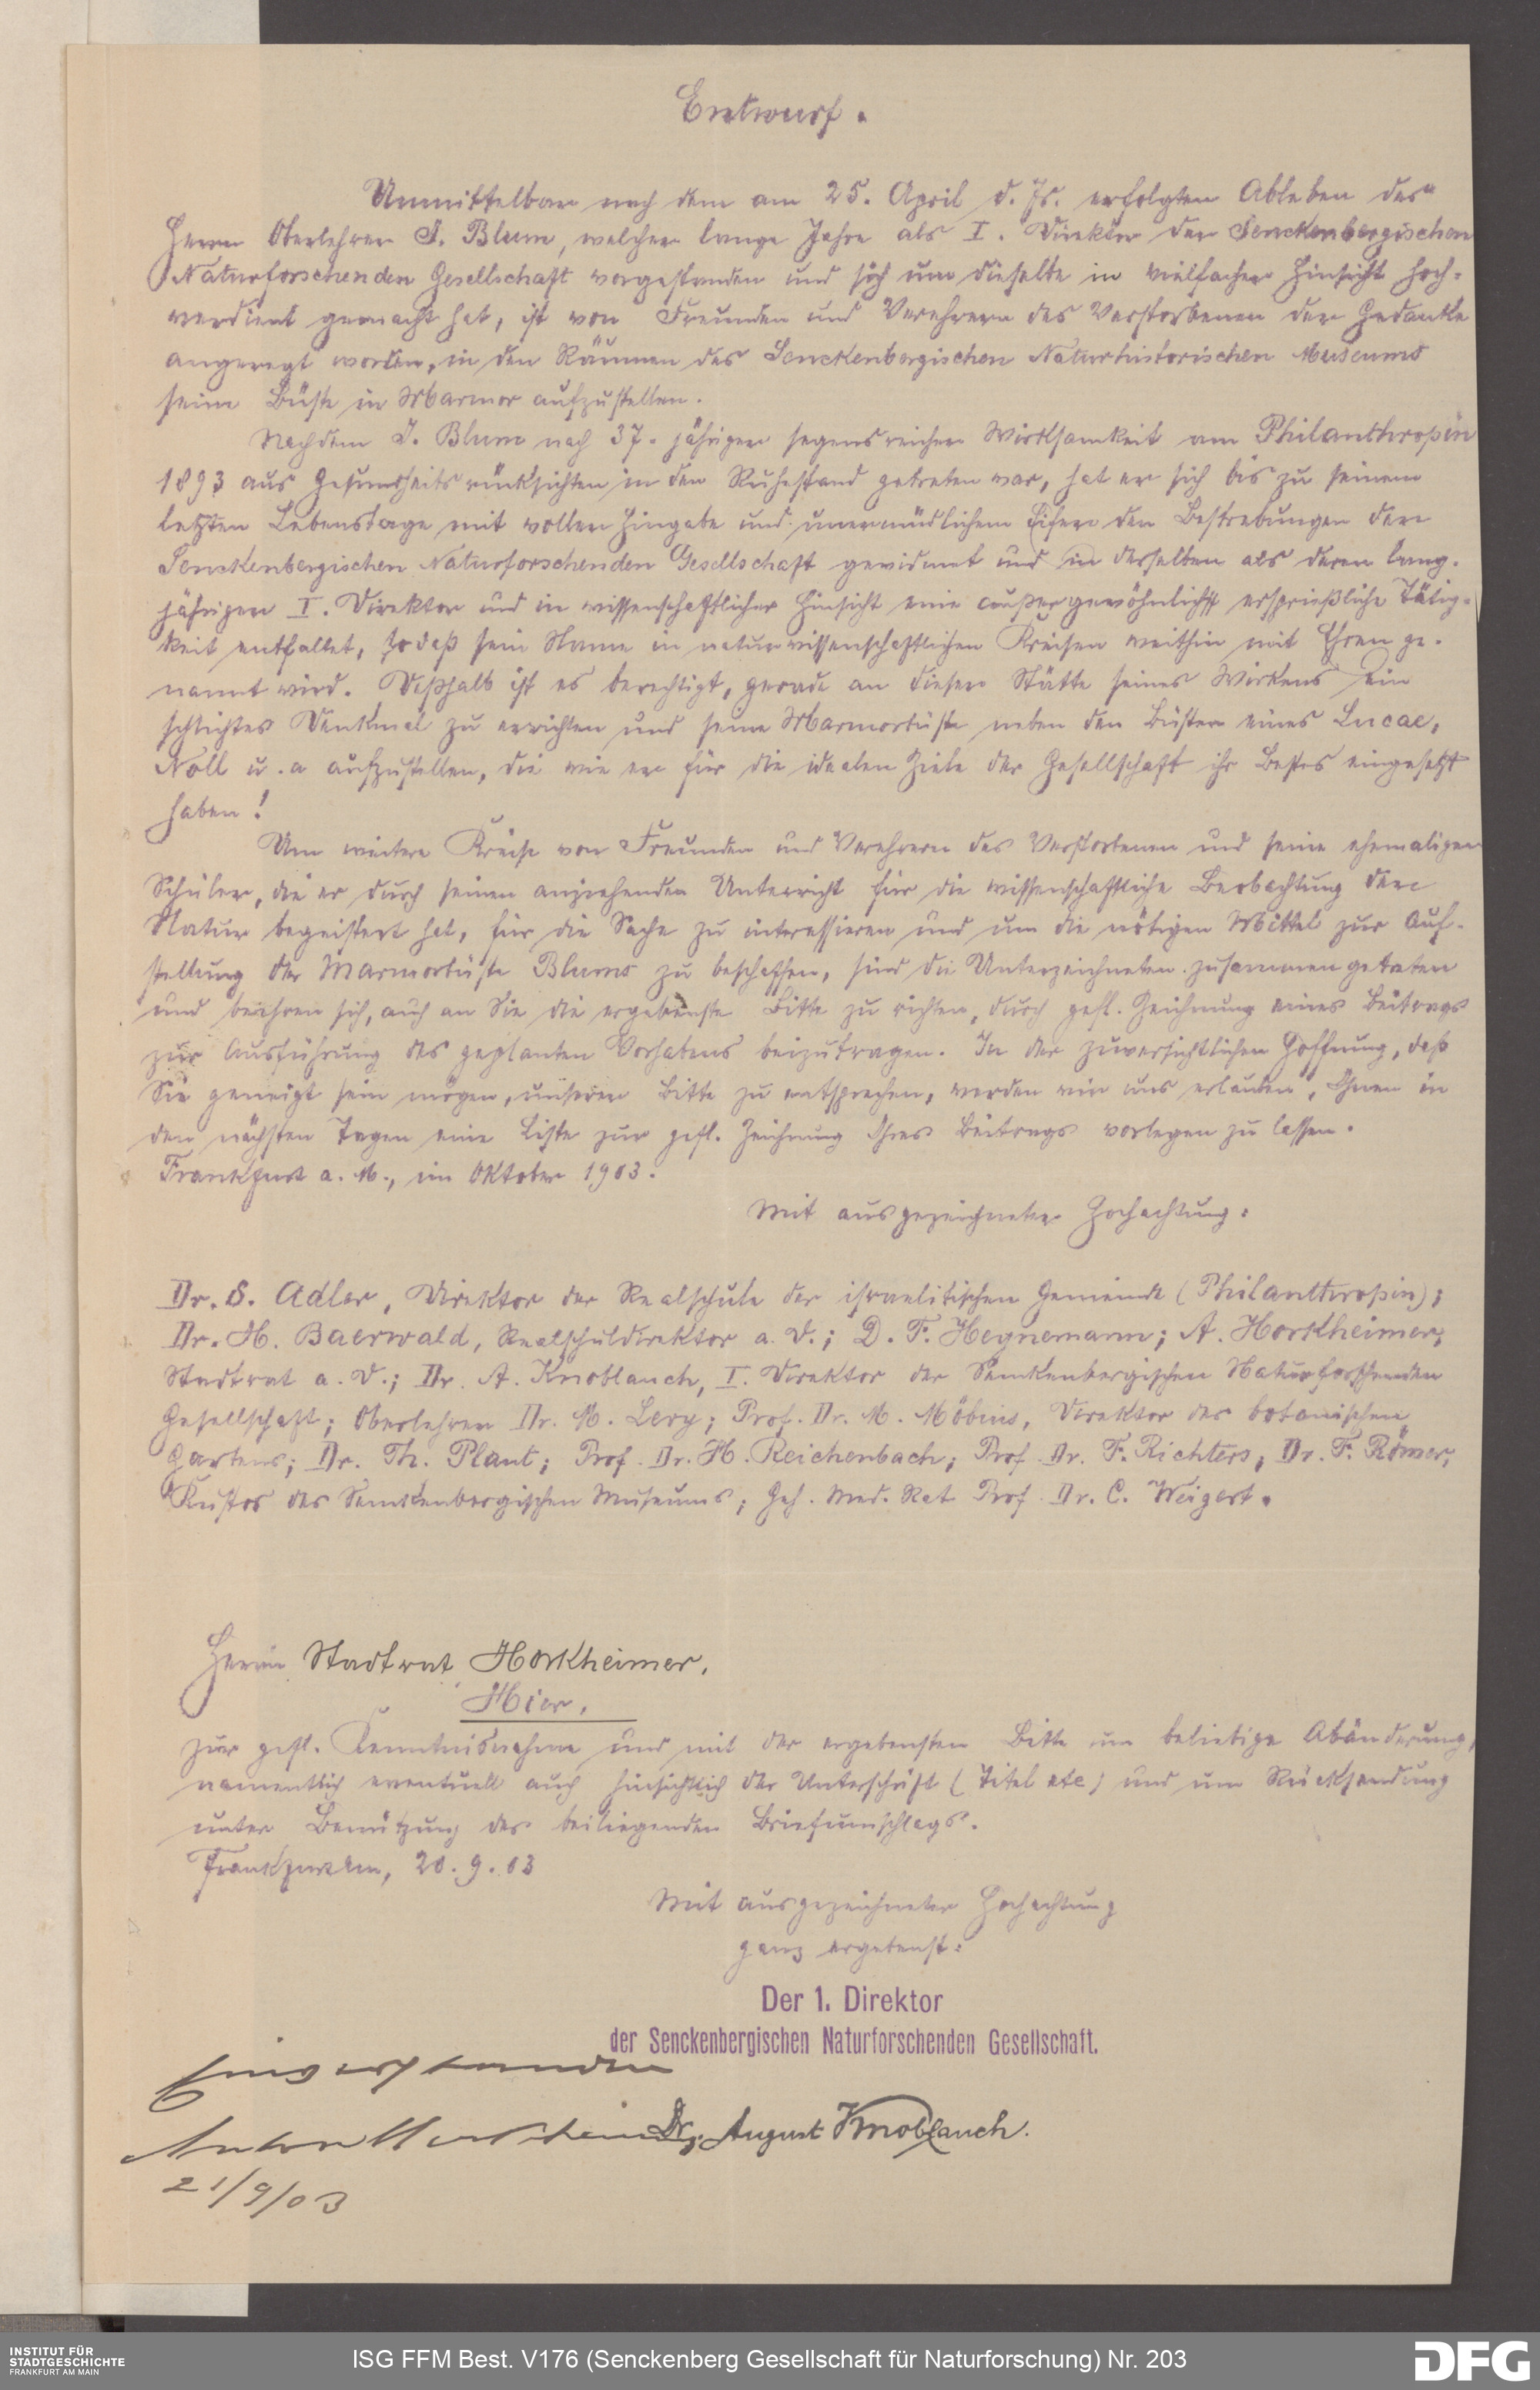 Entwurf.
Unmittelbar nach dem am 25. April d. Js. erfolgten Ableben des
Herrn Oberlehrer J. Blum, welcher lange Jahre als I. Direktor der Senckenbergischen
Naturforschenden Gesellschaft vorgestanden und sich um dieselbe in vielfacher Hinsicht hoch-
verdient gemacht hat, ist von Freunden und Verehrern des Verstorbenen der Gedanke
angeregt worden, in den Räumen des Senckenbergischen Naturhistorischen Museums
seine Büste in Marmor aufzustellen.
Nachdem J. Blum nach 37-jähriger segensreicher Wirksamkeit am Philanthropin
1893 aus Gesundheitsrücksichten in den Ruhestand getreten war, hat er sich bis zu seinem
letzten Lebenstage mit voller Hingabe und unermüdlichem Eifer den Bestrebungen der
Senckenbergischen Naturforschenden Gesellschaft gewidmet und in derselben als deren lang-
jähriger I. Direktor und in wissenschaftlicher Hinsicht eine außergewöhnlich ersprießliche Tätig-
keit entfaltet, sodaß sein Name in naturwissenschaftlichen Kreisen weithin mit Ehren ge-
nannt wird. Deßhalb ist es berechtigt, gerade an dieser Stätte seines Wirkens ein
schlichtes Denkmal zu errichten und seine Marmorbüste neben den Büsten eines Lucae,
Noll u. a aufzustellen, die wie er für die idealen Ziele der Gesellschaft ihr Bestes eingesetzt
haben!
Um weitere Kreise von Freunden und Verehrern des Verstorbenen und seine ehemaligen
Schüler, die er durch seinen anziehenden Unterricht für die wissenschaftliche Beobachtung der
Natur begeistert hat, für die Sache zu interessieren und um die nötigen Mittel zur Auf-
stellung der Marmorbüste Blums zu beschaffen, sind die Unterzeichneten zusammengetreten
und beehren sich, auch an Sie die ergebenste Bitte zu richten, durch gefl. Zeichnung eines Beitrags
zur Ausführung des geplanten Vorhabens beizutragen. In der zuversichtlichen Hoffnung, daß
Sie geneigt sein mögen, unserer Bitte zu entsprechen, werden wir uns erlauben, Ihnen in
den nächsten Tagen eine Liste zur gefl. Zeichnung Ihres Beitrags vorlegen zu lassen.
Frankfurt a. M., im Oktober 1903.
Mit ausgezeichneter Hochachtung:
Dr. S. Adler, Direktor der Realschule der israelitischen Gemeinde (Philanthropin);
Dr. H. Baerwald, Realschuldirektor a. D.; D. F. Heynemann; A. Horkheimer,
Stadtrat a. D.; Dr. A. Knoblauch, I. Direktor der Senckenbergischen Naturforschenden
Gesellschaft; Oberlehrer Dr. M. Levy; Prof. Dr. M. Möbius, Direktor des botanischen
Gartens; Dr. Th. Plaut; Prof. Dr. H. Reichenbach; Prof. Dr. F. Richters; Dr. F. Römer,
Kustos des Senckenbergischen Museums; Geh. Med. Rat Prof. Dr. C. Weigert.
Herrn Stadtrat Horkheimer,
Hier,
zur gefl. Kenntnisnahme und mit der ergebensten Bitte um beliebige Abänderung,
namentlich eventuell auch hinsichtlich der Unterschrift (Titel etc) und um Rücksendung
unter Benützung des beiliegenden Briefumschlags.
Frankfurt a/m, 20. 9. 03
Mit ausgezeichneter Hochachtung
ganz ergebenst:
Der 1. Direktor
der Senckenbergischen Naturforschenden Gesellschaft.
Einverstanden
Anton Horkheimer
Dr. August Knoblauch.
21/9/03
INSTITUT FÜR
STADTGESCHICHTE
FRANKFURT AM MAIN
ISG FFM Best. V176 (Senckenberg Gesellschaft für Naturforschung) Nr. 203
DFG